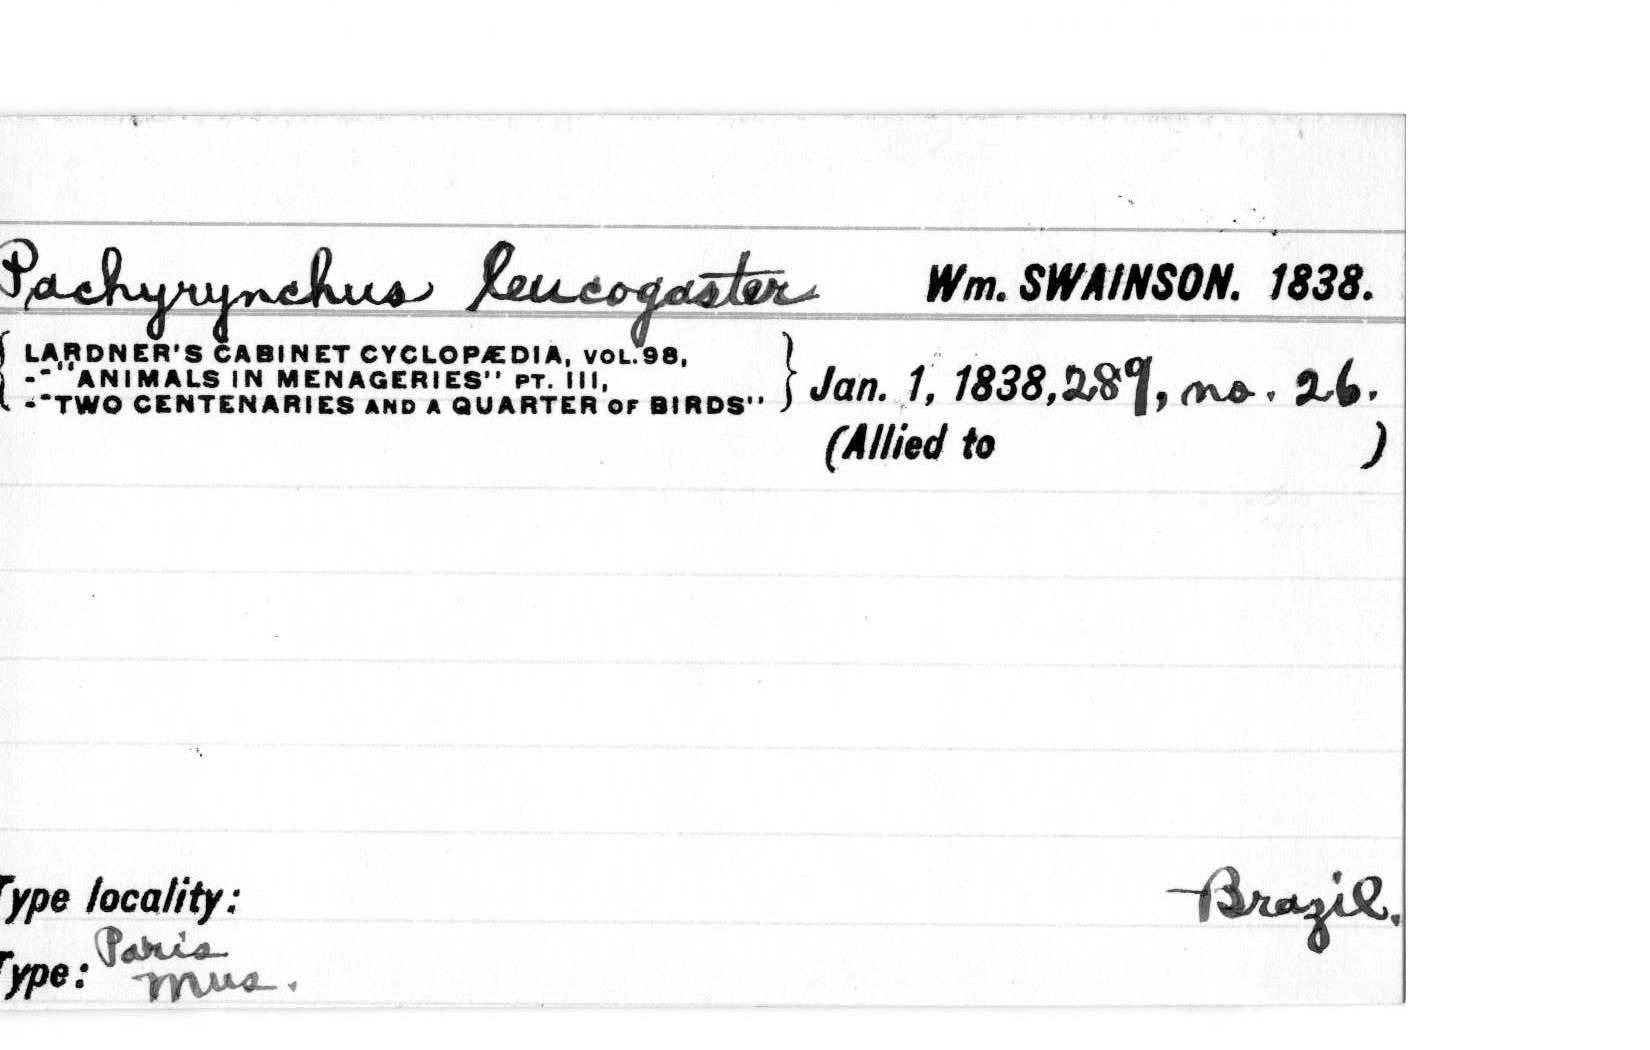 Pachyrynchus leucogaster Wm. SWAINSON. 1838.
{ LARDNER'S CABINET CYCLOPÆDIA, VOL.98,
--"ANIMALS IN MENAGERIES" PT. III,
--"TWO CENTENARIES AND A QUARTER OF BIRDS" } Jan. 1, 1838, 289, no. 26.
(Allied to )
Type locality: Brazil.
Type: Paris
Mus.